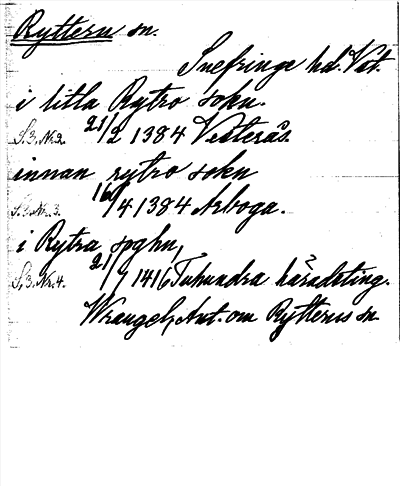 Ryttern sn.
Snefringe hd. Vst.
i litla Rytro sokn.
S. 3. Nr. 2. 21/2 1384 Vesterås.
innan rytro sokn
S. 3. Nr. 3. 16/4 1384 Arboga.
i Rytra soghn,
S. 3. Nr. 4. 21/7 1416 Tuhundra häradsting.
Wrangel, Ant. om Rytterns sn.